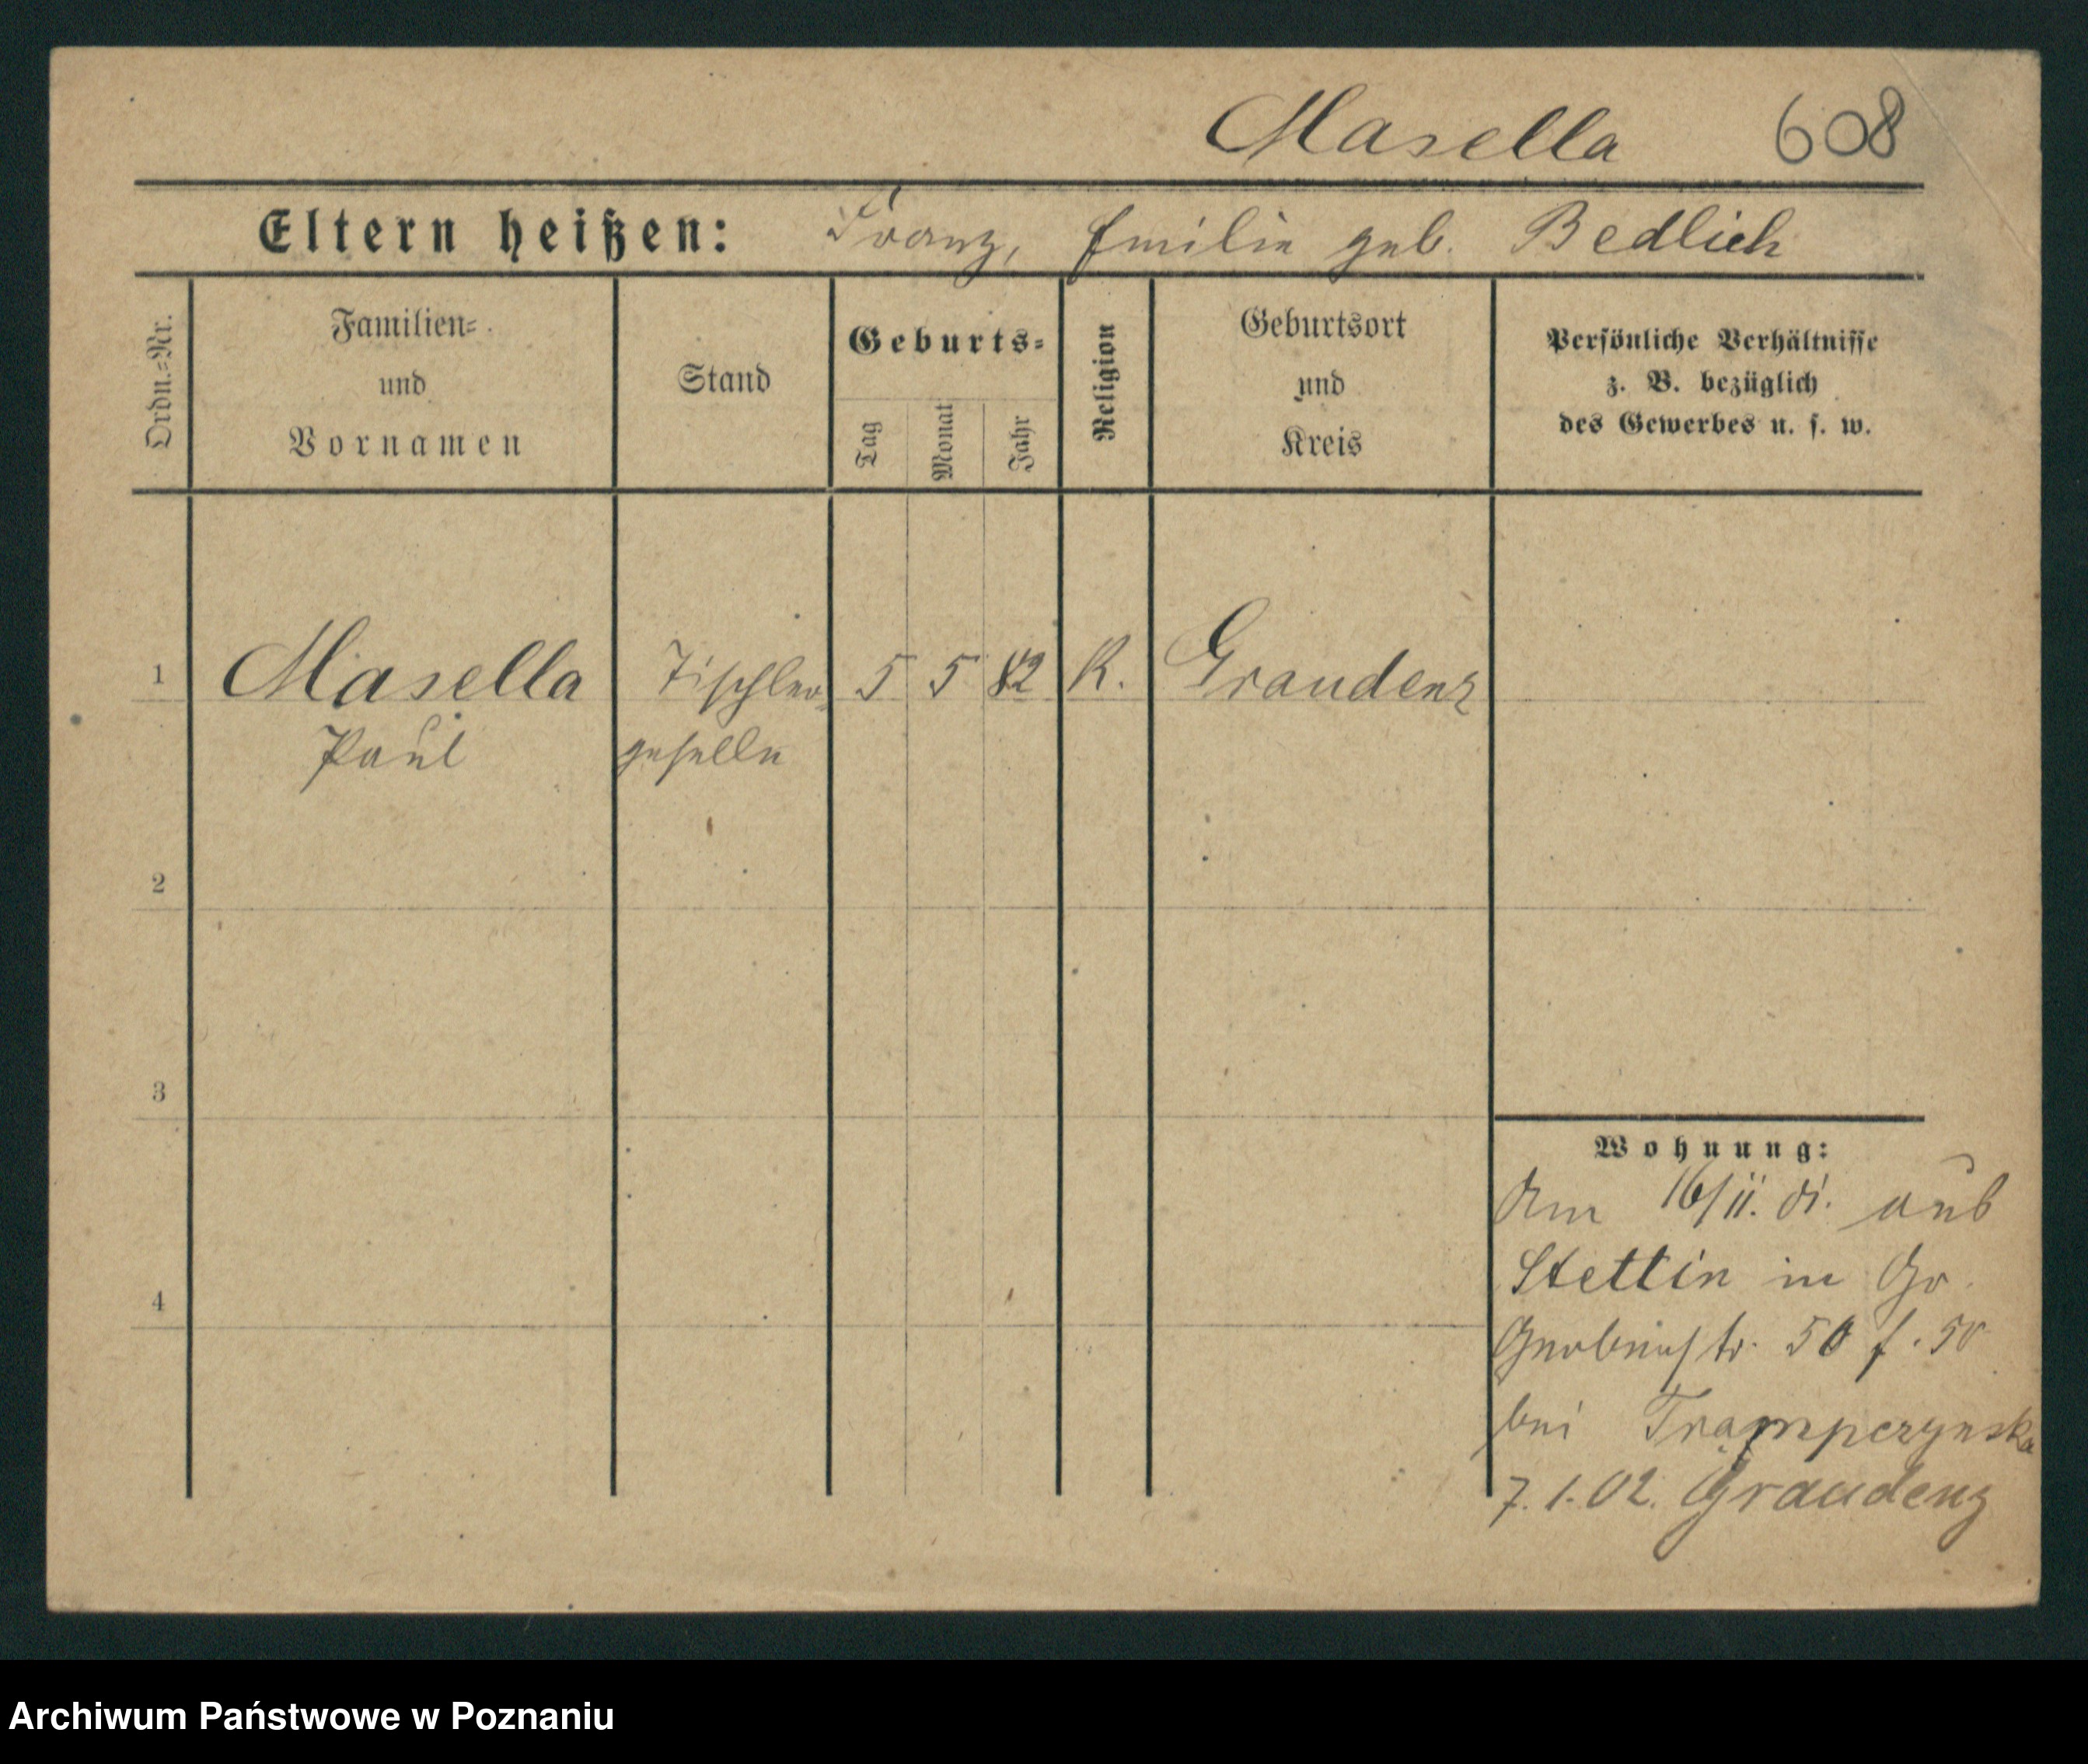 Masella 608
Eltern heißen: Franz, Emilie geb. Bedlich
Ordn.=Nr.
Familien=
und
Vornamen
Stand
Geburts=
Tag
Monat
Jahr
Religion
Geburtsort
und
Kreis
Persönliche Verhältnisse
z. B. bezüglich
des Gewerbes u. s. w.
1 Masella Tischler= 5 5 82 K. Graudenz
Paul geselle
2
3
4
Wohnung:
Am 16/11. 01. aus
Stettin in
Gerberstr. 50
bei Trąmpczynska
7.1.02. Graudenz
Archiwum Państwowe w Poznaniu